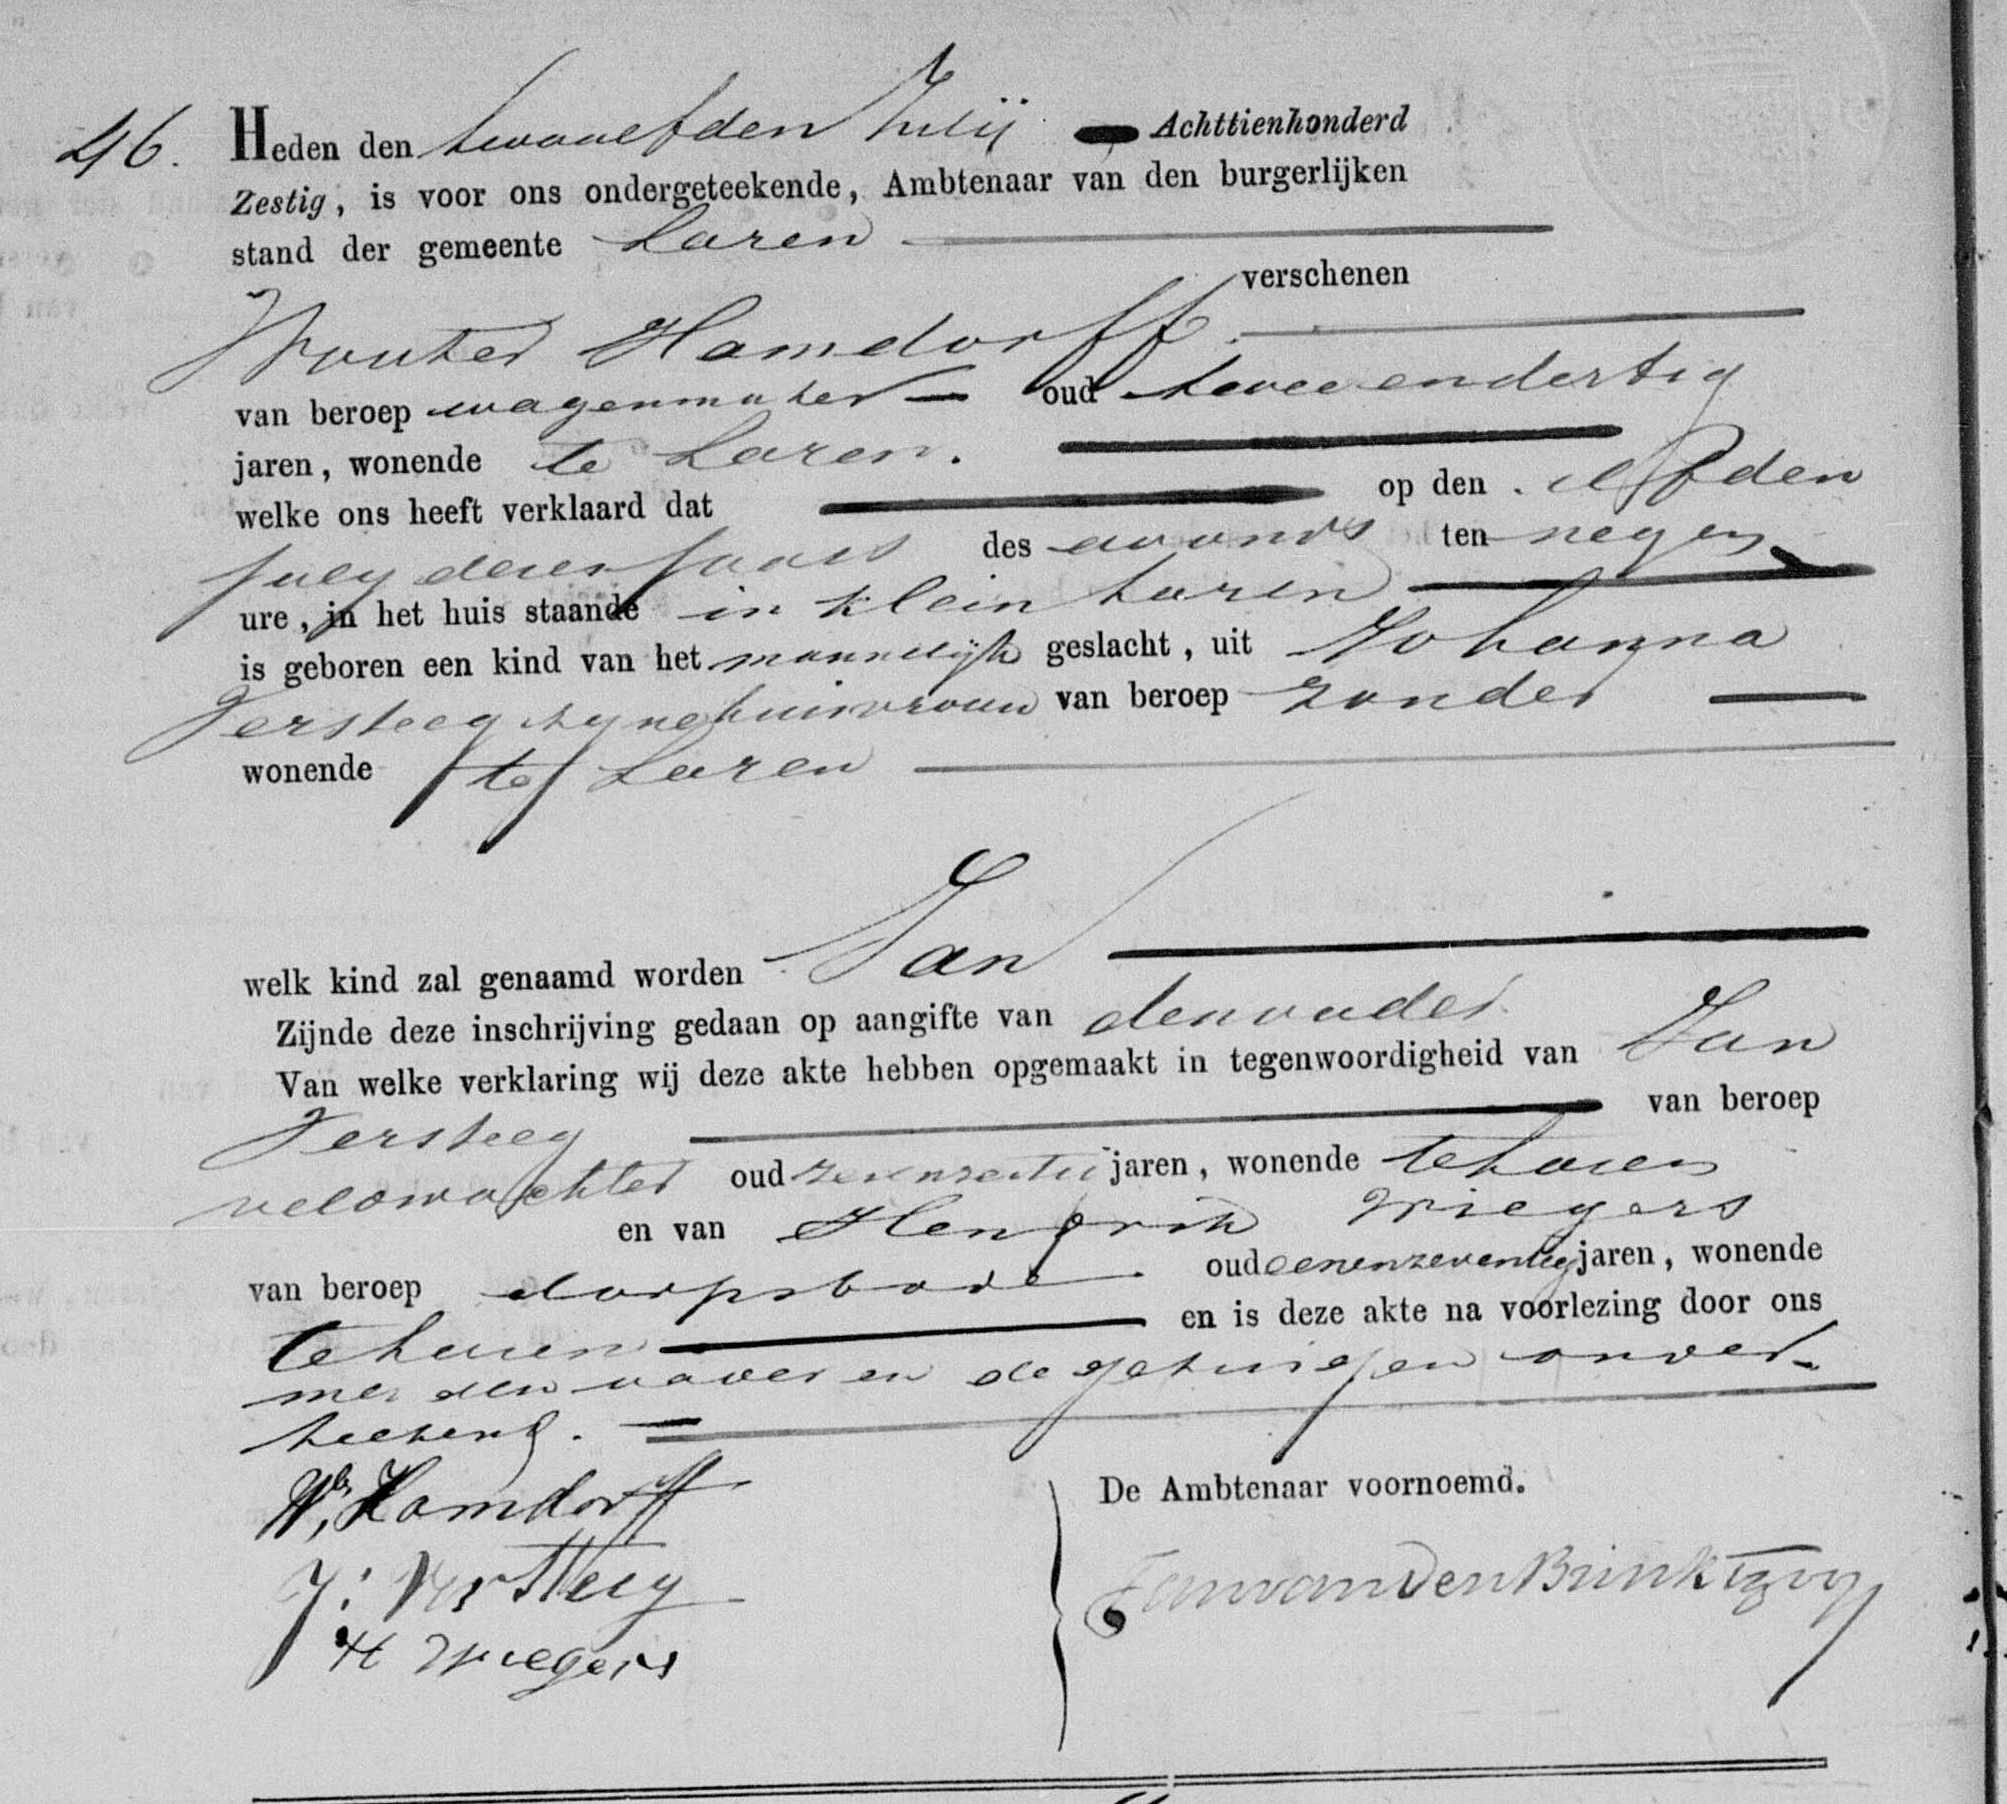 46. Heden den twaalfden Julij Achttienhonderd
Zestig, is voor ons ondergeteekende, Ambtenaar van den burgerlijken
stand der gemeente Laren
verschenen
Wouter Hamdorff
van beroep wagenmaker oud twee en dertig
jaren, wonende te Laren.
welke ons heeft verklaard dat op den elfden
July dezes Jaars des avonds ten negen
ure, in het huis staande in klein Laren
is geboren een kind van het mannelijk geslacht, uit Johanna
Versteeg zyne huisvrouw van beroep zonder
wonende te Laren
welk kind zal genaamd worden Jan
Zijnde deze inschrijving gedaan op aangifte van den vader
Van welke verklaring wij deze akte hebben opgemaakt in tegenwoordigheid van Jan
Versteeg van beroep
veldwachter oud jaren, wonende te Laren
en van Hendrik Wiegers
van beroep dorpsbode oud eenenzeventig jaren, wonende
te Laren en is deze akte na voorlezing door ons
met den vader en de getuigen onder-
teekend.
Wr. Hamdorff
J: Versteeg
H Wiegers
De Ambtenaar voornoemd.
van den Brink